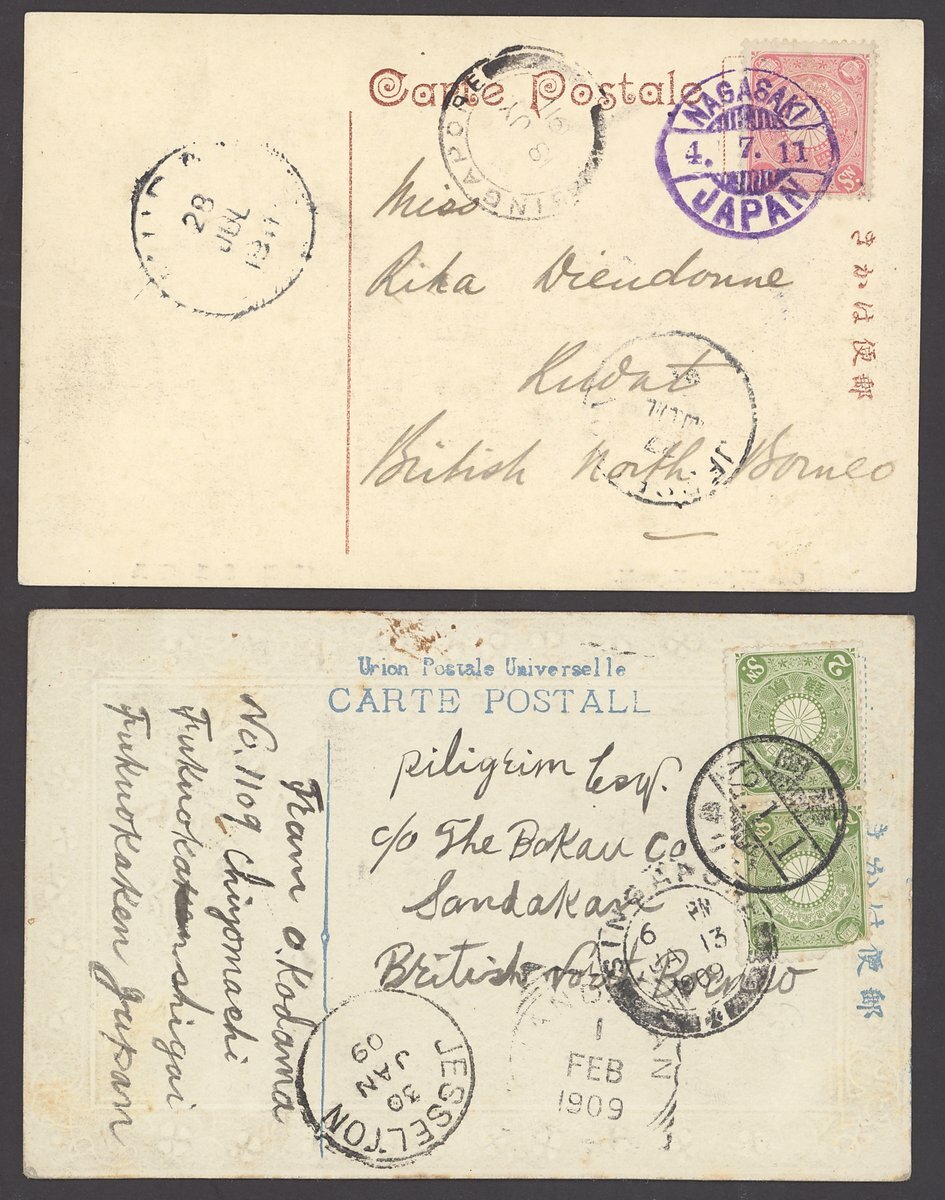 Carte Postale
SINGAPORE
JY
8
NAGASAKI
4. 7. 11
JAPAN
Sn
28
JUL
1911
Miss
Rika Dieudonne
Kudat
British North Borneo
きかは便郵
Union Postale Universelle
CARTE POSTALL
2
Sn
piligrim Esq.
c/o The Bakau Co
Sandakan
British North Borneo
きかは便郵
SINGAPORE
PM
6
13
JA
1909
JESSELTON
30
JAN
09
1
FEB
1909
From O. Kodama
No. 1109 Chiyomachi
Fukuoka shigai
Fukuokaken Japan